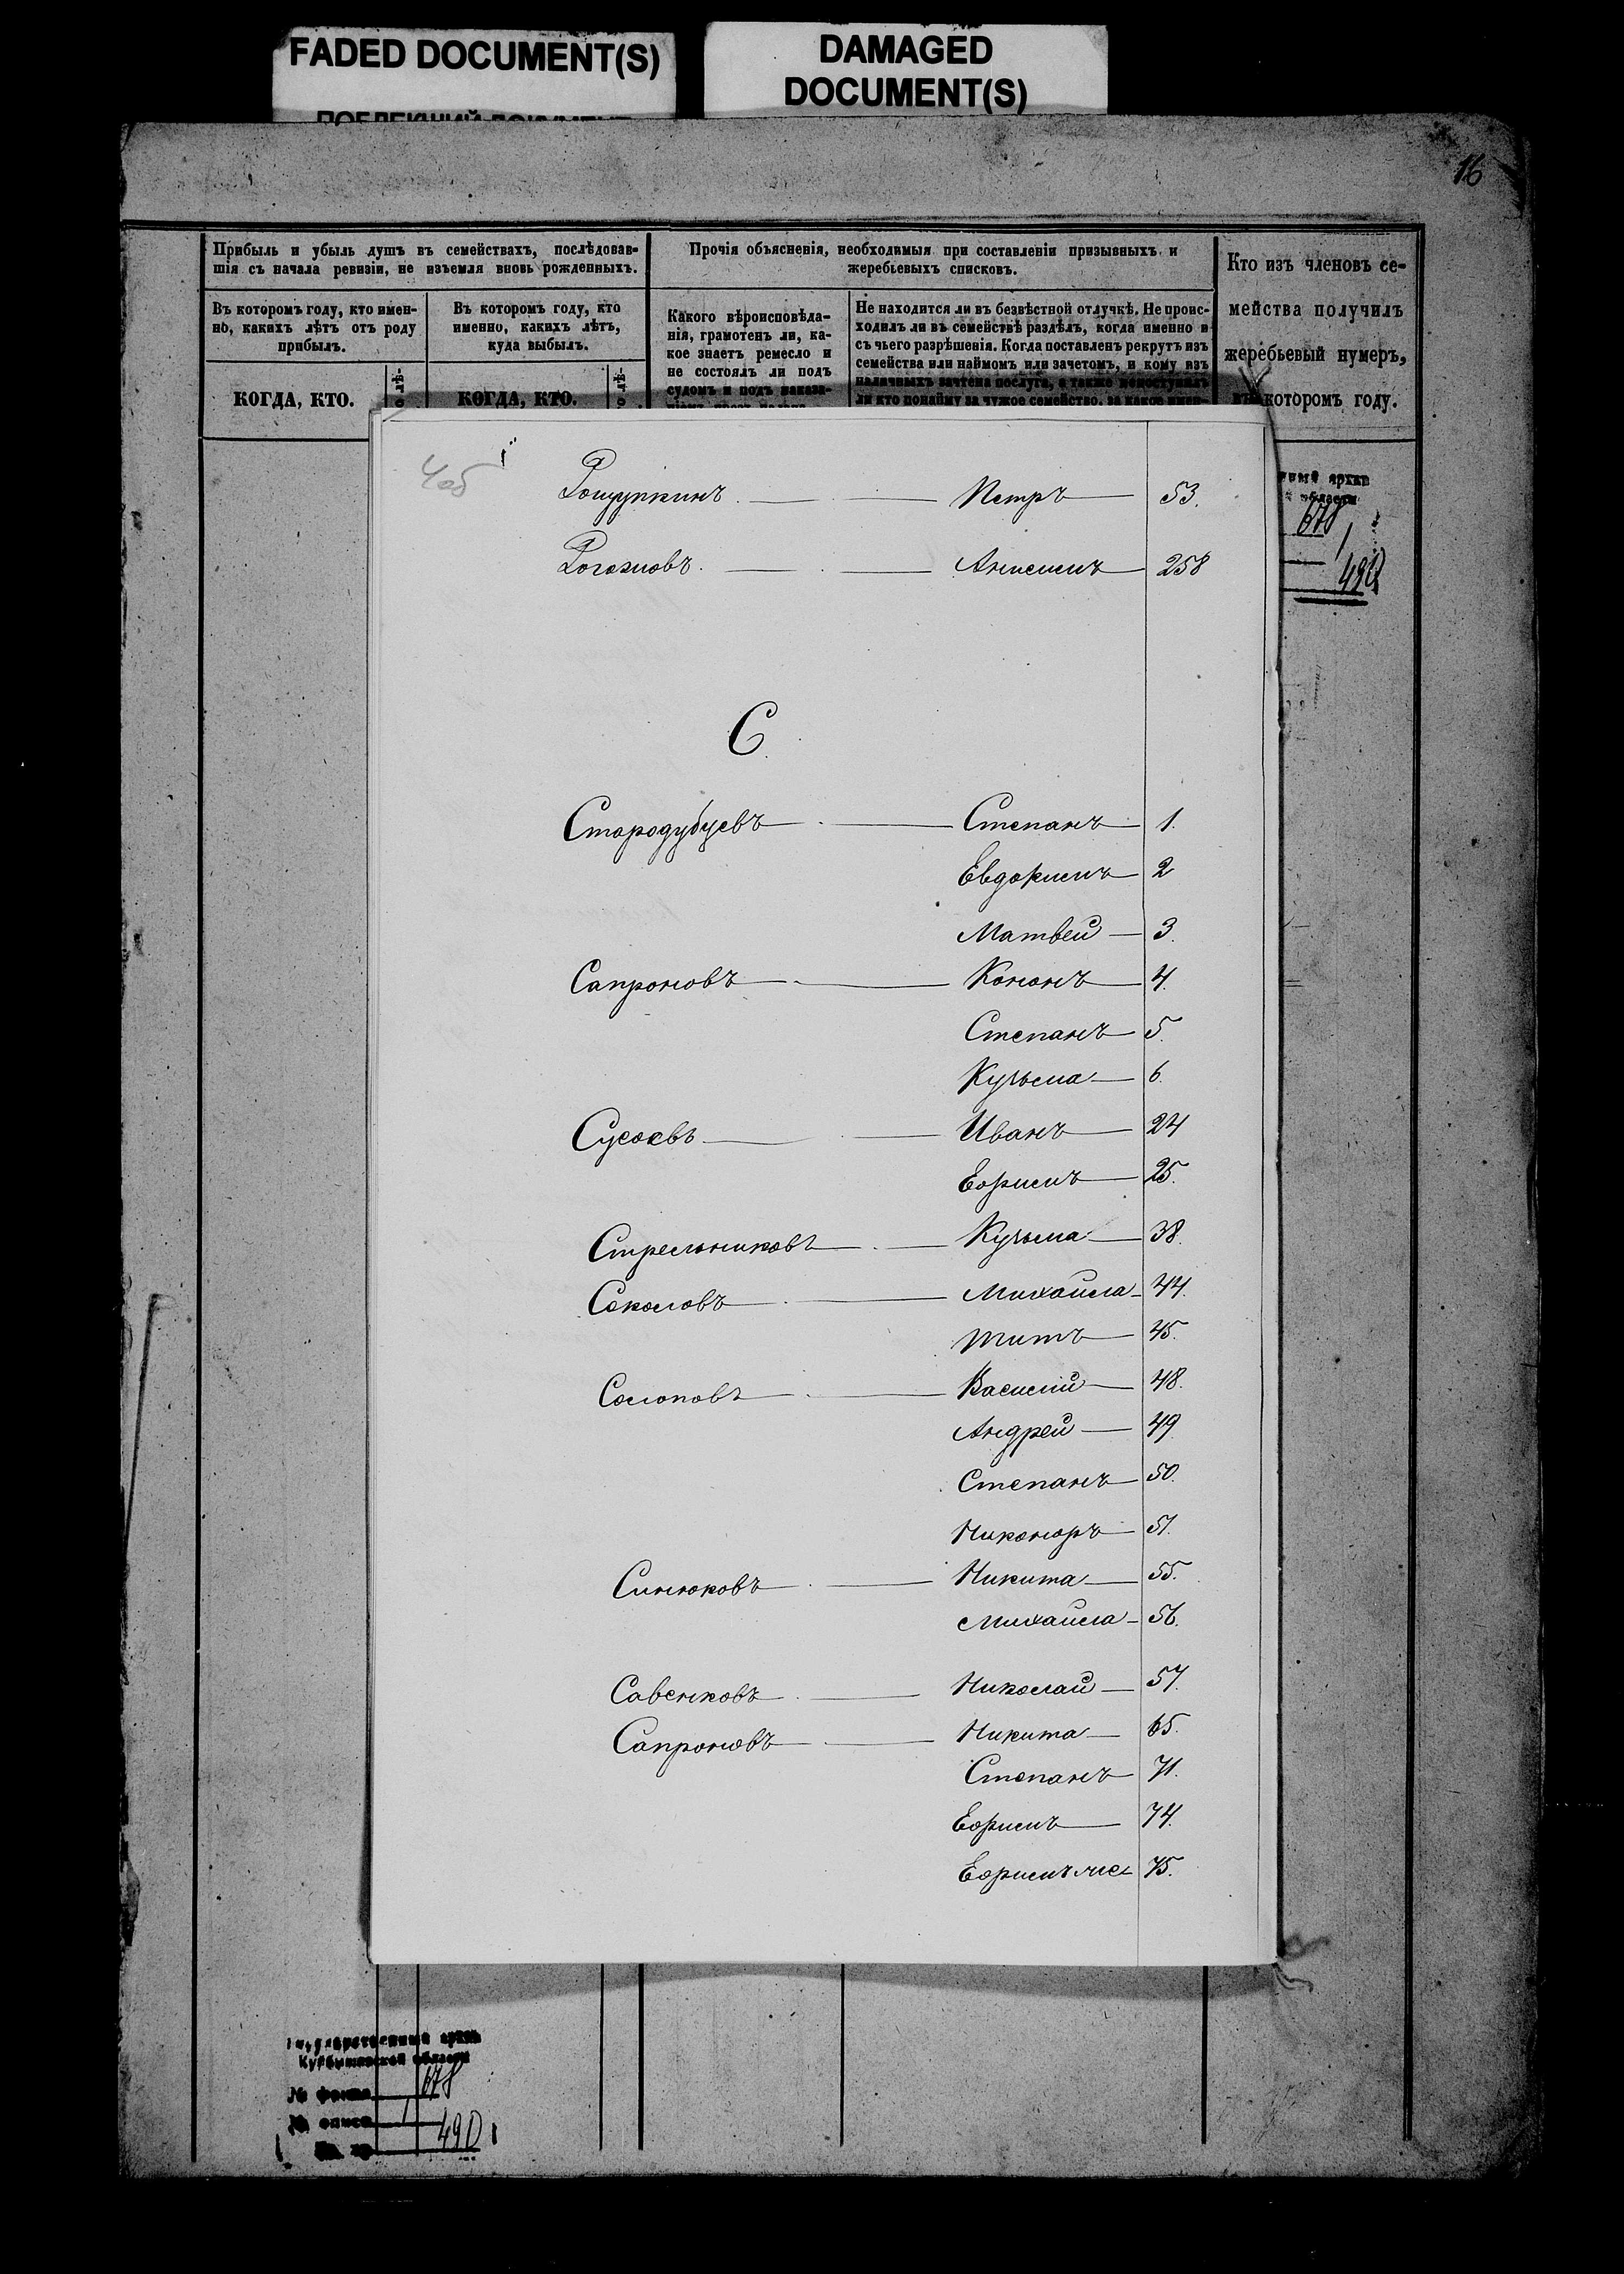 FADED DOCUMENT(S)
DAMAGED
DOCUMENT(S)
16
Прибыль и убыль душъ въ семействахъ, послѣдовав-
шія съ начала ревизіи, не изъемля вновь рожденныхъ.
Въ которомъ году, кто имен-
но, какихъ лѣтъ отъ роду
прибылъ.
Въ которомъ году, кто
именно, какихъ лѣтъ,
куда выбылъ.
КОГДА, КТО.
КОГДА, КТО.
Прочія объясненія, необходимыя при составленіи призывныхъ и
жеребьевыхъ списковъ.
Какого вѣроисповѣда-
нія, грамотенъ ли, ка-
кое знаетъ ремесло и
не состоялъ ли подъ
судомъ и подъ наказа-
Не находится ли въ безвѣстной отлучкѣ. Не проис-
ходилъ ли въ семействѣ раздѣлъ, когда именно и
съ чьего разрѣшенія. Когда поставленъ рекрутъ изъ
семейства или наймомъ или зачетомъ, и кому изъ
наличныхъ зачтена послуга, а также
ли кто по найму за чужое семейство, за какое имен-
Кто изъ членовъ се-
мейства получилъ
жеребьевый нумеръ,
въ которомъ году.
4об
Рощупкинъ Петръ 53.
Рогозновъ Анисимъ 258
С.
Стародубцевъ Степанъ 1.
Евдокимъ 2
Матвей 3.
Сапроновъ Кононъ 4.
Степанъ 5.
Кузьма 6.
Сусоевъ Иванъ 24
Ефримъ 25.
Стрельниковъ Кузьма 38.
Соколовъ Михайла 44.
Титъ 45.
Солоповъ Василий 48.
Андрей 49
Степанъ 50.
Никоноръ 51.
Синюковъ Никита 55.
Михайла 56.
Савенковъ Николай 57.
Сапроновъ Никита 65.
Степанъ 71.
Ефримъ 74.
Ефримъ же 75.
архив
области
678
1
490
Государственный архив
Куйбышевской области
№ фонда 678
№ описи 1
490